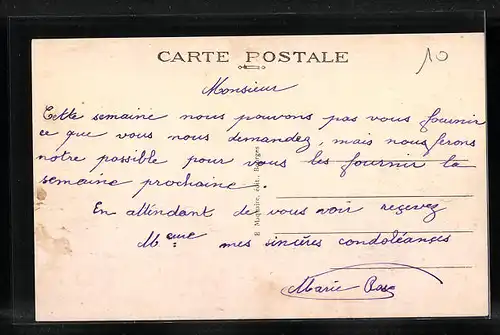 CARTE POSTALE
10
Monsieur
Cette semaine nous pouvons pas vous fournir
ce que vous nous demandez, mais nous ferons
nôtre possible pour vous les fournir la
semaine prochaine.
En attendant de vous voir reçevez
Meme mes sincères condoléances
Marie
édit., Bourges